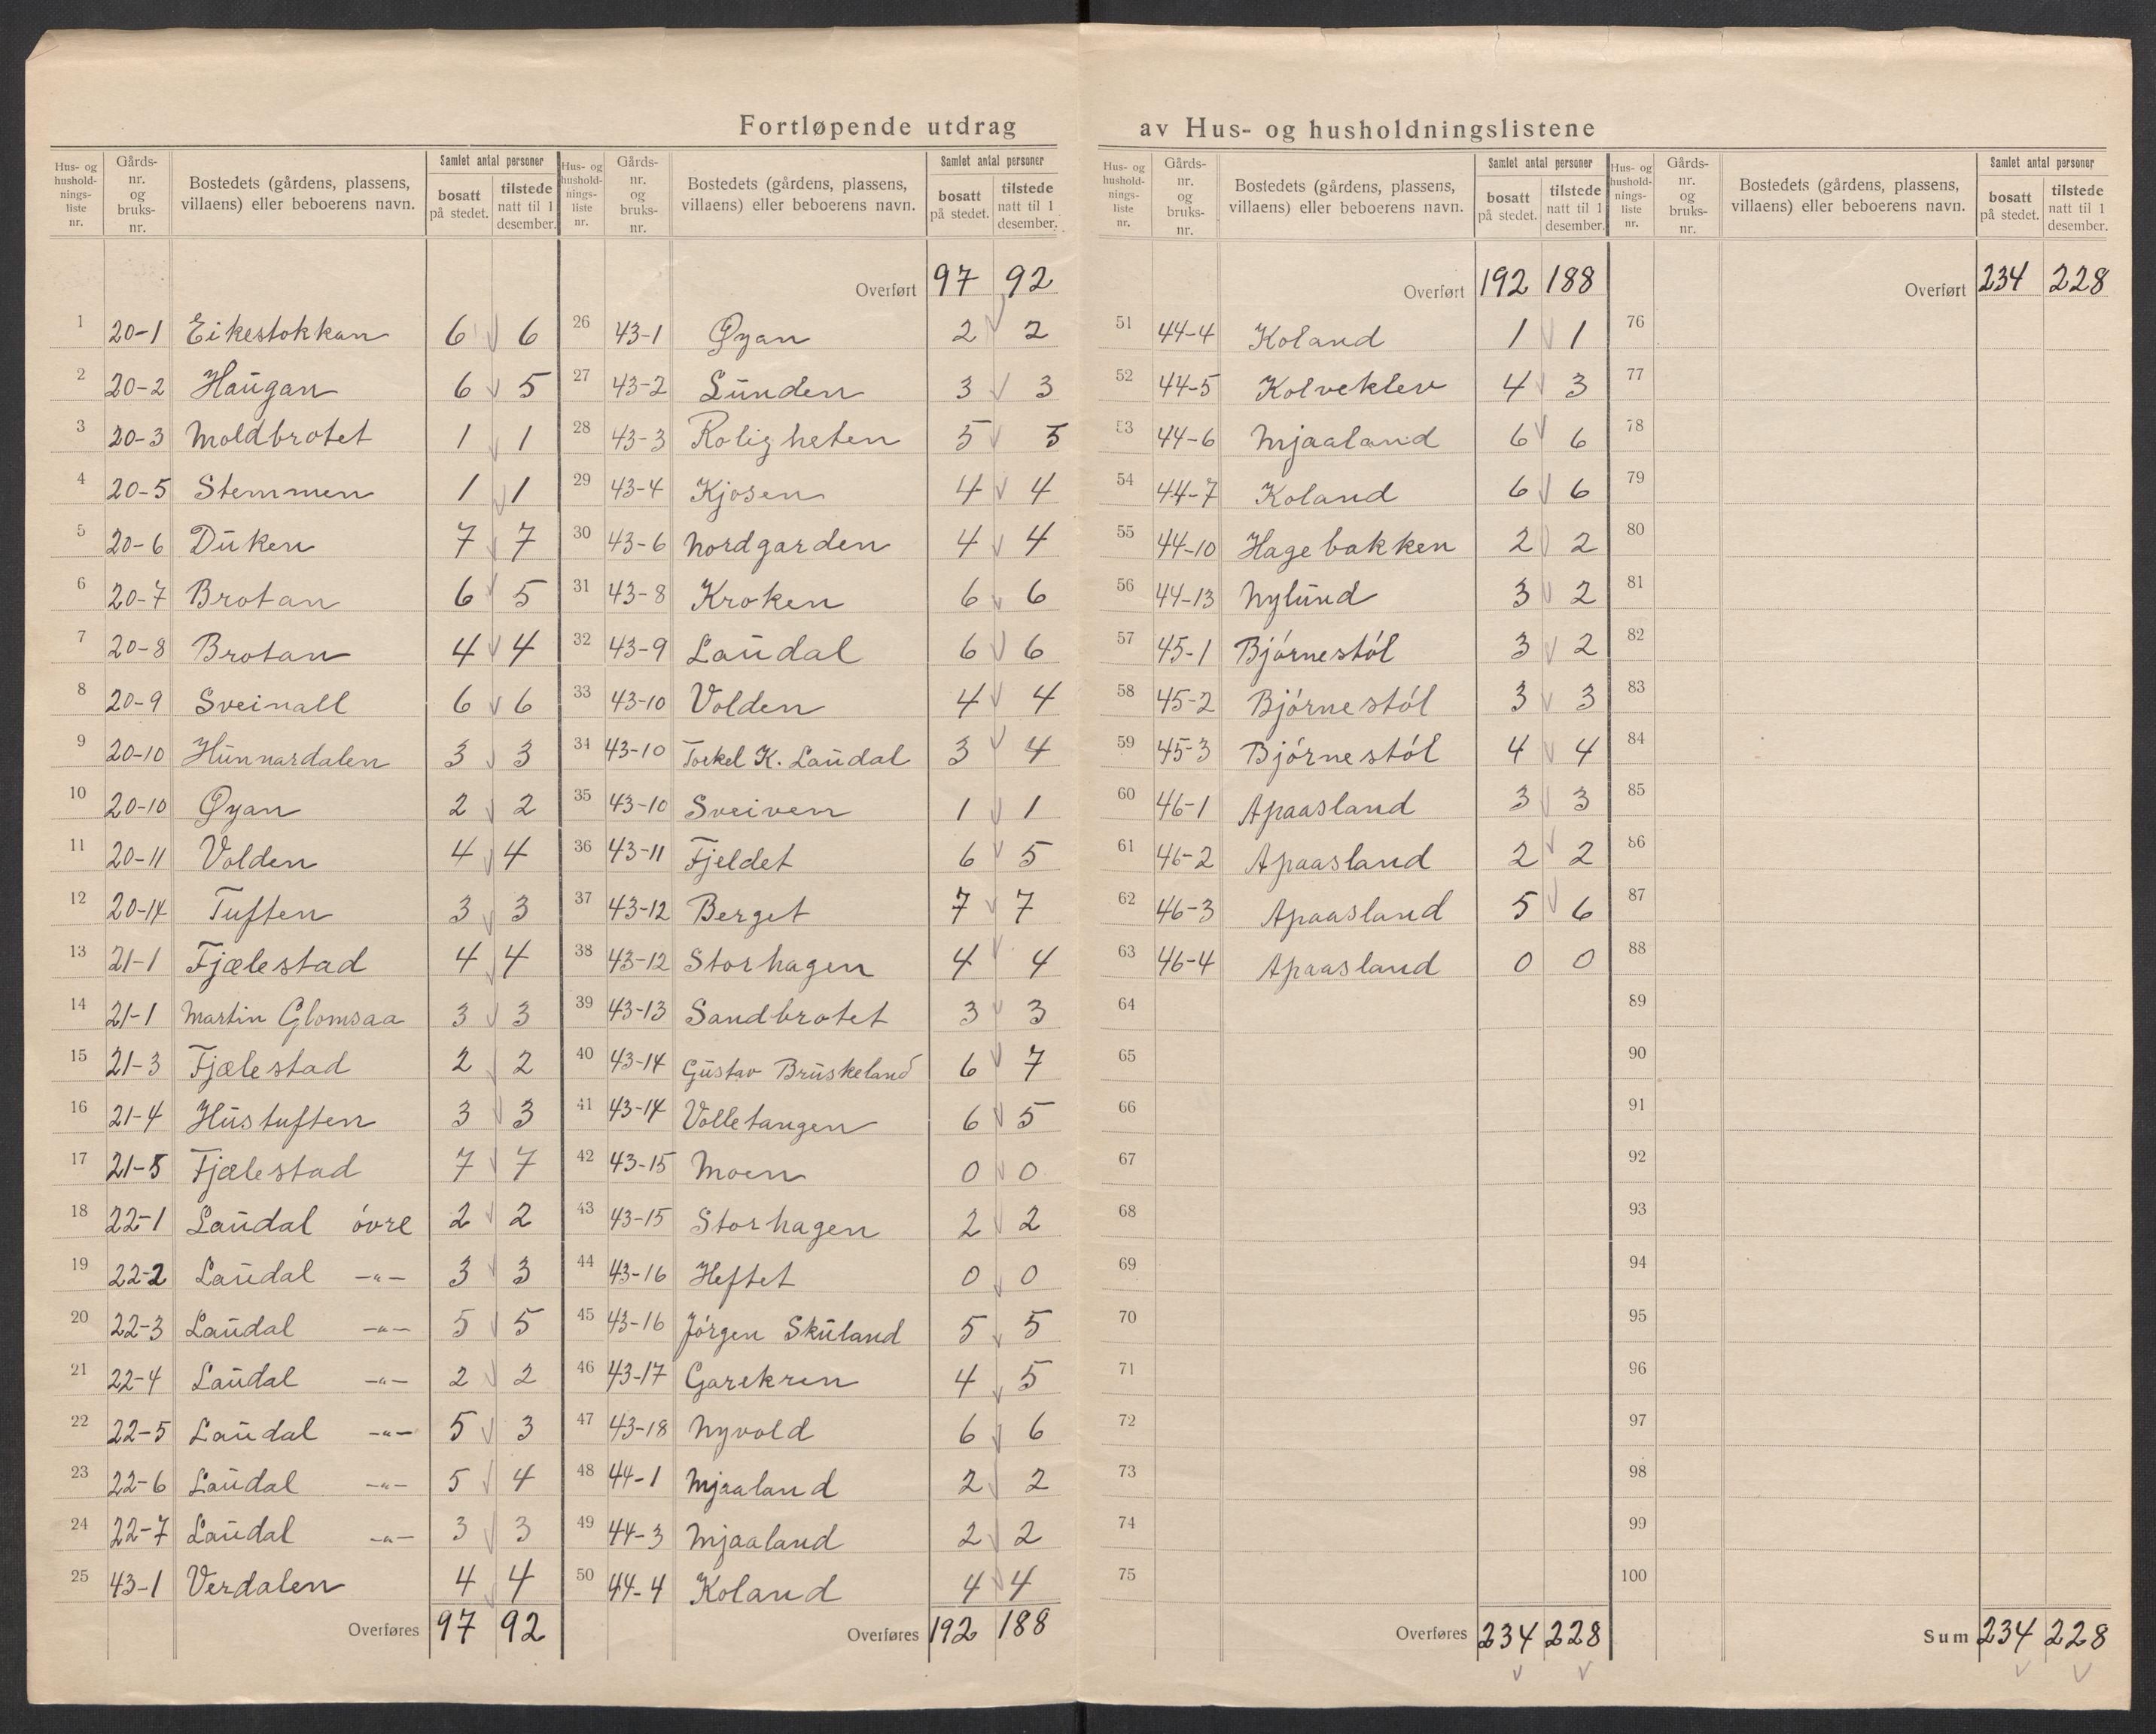 Fortløpende utdrag av Hus- og husholdningslistene
Hus- og husholdnings-liste nr. | Gårds-nr. og bruks-nr. | Bostedets (gårdens, plassens, villaens) eller beboerens navn. | Samlet antal personer | bosatt på stedet. | tilstede natt til 1 desember.
1 20-1 Eikestokkan 6 6
2 20-2 Haŭgan 6 5
3 20-3 Moldbrotet 1 1
4 20-5 Stemmen 1 1
5 20-6 Dŭken 7 7
6 20-7 Brotan 6 5
7 20-8 Brotan 4 4
8 20-9 Sveinall 6 6
9 20-10 Hŭnnardalen 3 3
10 20-10 Øyan 2 2
11 20-11 Volden 4 4
12 20-14 Tuften 3 3
13 21-1 Fjælestad 4 4
14 21-1 Martin Glomsaa 3 3
15 21-3 Fjælestad 2 2
16 21-4 Hŭstuften 3 3
17 21-5 Fjælestad 7 7
18 22-1 Laŭdal óvre 2 2
19 22-2 Laŭdal -"- 3 3
20 22-3 Laŭdal -"- 5 5
21 22-4 Laŭdal -"- 2 2
22 22-5 Laŭdal -"- 5 3
23 22-6 Laŭdal -"- 5 4
24 22-7 Laŭdal -"- 3 3
25 43-1 Verdalen 4 4
Overføres 97 92
Hus- og husholdnings-liste nr. | Gårds-nr. og bruks-nr. | Bostedets (gårdens, plassens, villaens) eller beboerens navn. | Samlet antal personer | bosatt på stedet. | tilstede natt til 1 desember.
Overført 97 92
26 43-1 Øyan 2 2
27 43-2 Lŭnden 3 3
28 43-3 Roligheten 5 5
29 43-4 Kjosen 4 4
30 43-6 Nordgarden 4 4
31 43-8 Kroken 6 6
32 43-9 Laŭdal 6 6
33 43-10 Volden 4 4
34 43-10 Torkel K. Laŭdal 3 4
35 43-10 Sveiven 1 1
36 43-11 Fjeldet 6 5
37 43-12 Berget 7 7
38 43-12 Storhagen 4 4
39 43-13 Sandbrotet 3 3
40 43-14 Gŭstav Brŭskeland 6 7
41 43-14 Volletangen 6 5
42 43-15 Moen 0 0
43 43-15 Storhagen 2 2
44 43-16 Heftet 0 0
45 43-16 Jórgen Skŭland 5 5
46 43-17 Garekren 4 5
47 43-18 Nyvold 6 6
48 44-1 Mjaaland 2 2
49 44-3 Mjaaland 2 2
50 44-4 Koland 4 4
Overføres 192 188
Hus- og husholdnings-liste nr. | Gårds-nr. og bruks-nr. | Bostedets (gårdens, plassens, villaens) eller beboerens navn. | Samlet antal personer | bosatt på stedet. | tilstede natt til 1 desember.
Overført 192 188
51 44-4 Koland 1 1
52 44-5 Kolveklev 4 3
53 44-6 Mjaaland 6 6
54 44-7 Koland 6 6
55 44-10 Hagebakken 2 2
56 44-13 Nylŭnd 3 2
57 45-1 Bjórnestól 3 2
58 45-2 Bjórnestól 3 3
59 45-3 Bjórnestól 4 4
60 46-1 Apaasland 3 3
61 46-2 Apaasland 2 2
62 46-3 Apaasland 5 6
63 46-4 Apaasland 0 0
64
65
66
67
68
69
70
71
72
73
74
75
Overføres 234 228
Hus- og husholdnings-liste nr. | Gårds-nr. og bruks-nr. | Bostedets (gårdens, plassens, villaens) eller beboerens navn. | Samlet antal personer | bosatt på stedet. | tilstede natt til 1 desember.
Overført 234 228
76
77
78
79
80
81
82
83
84
85
86
87
88
89
90
91
92
93
94
95
96
97
98
99
100
Sum 234 228